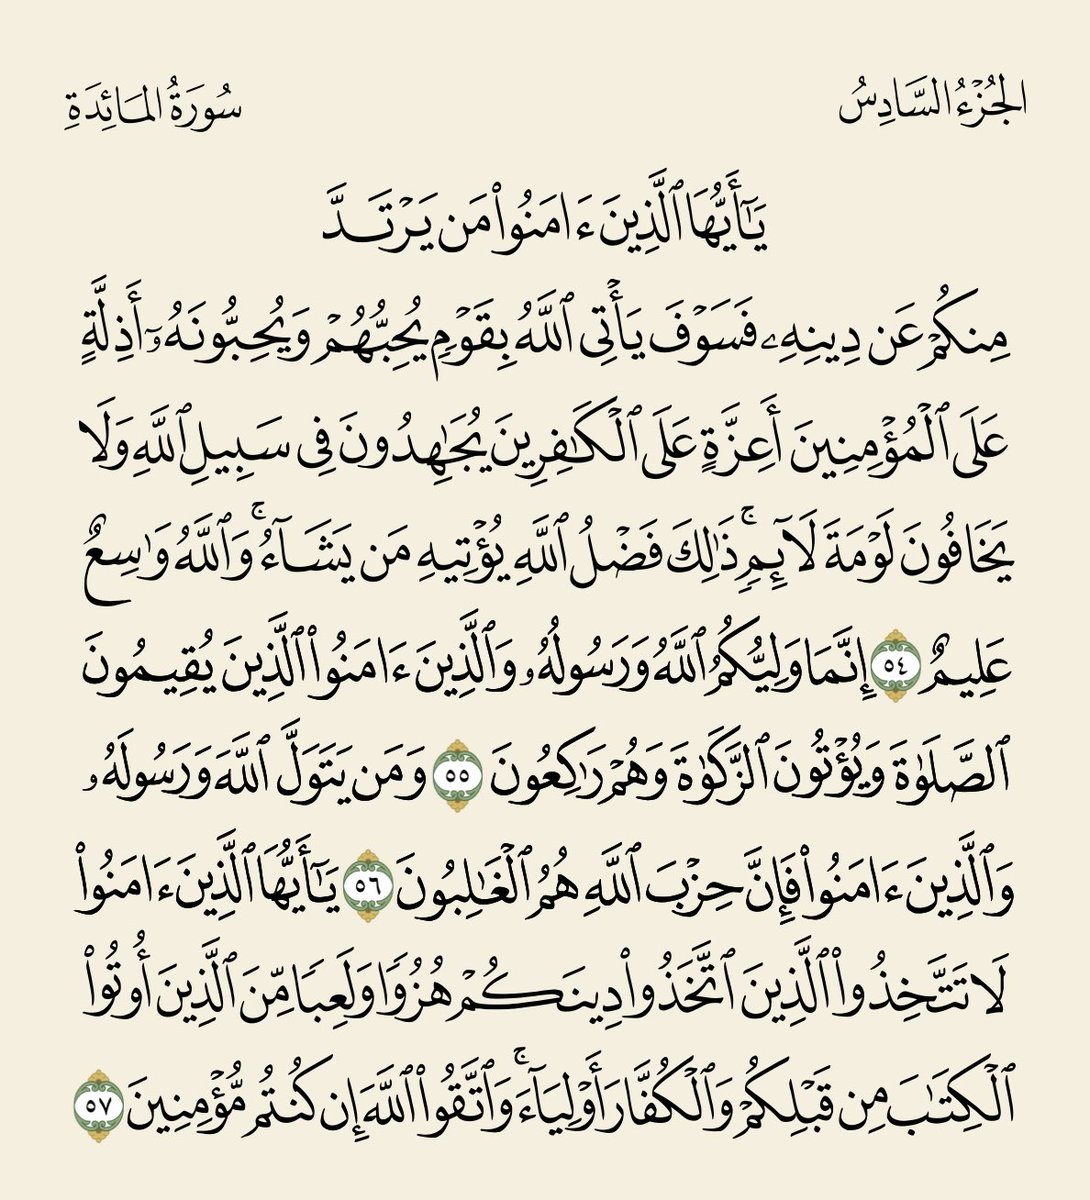 الجُزْءُ السَّادِسُ
سُورَةُ المَائِدَةِ
يَـٰٓأَيُّهَا ٱلَّذِينَ ءَامَنُوا۟ مَن يَرْتَدَّ
مِنكُمْ عَن دِينِهِۦ فَسَوْفَ يَأْتِى ٱللَّهُ بِقَوْمٍ يُحِبُّهُمْ وَيُحِبُّونَهُۥٓ أَذِلَّةٍ
عَلَى ٱلْمُؤْمِنِينَ أَعِزَّةٍ عَلَى ٱلْكَـٰفِرِينَ يُجَـٰهِدُونَ فِى سَبِيلِ ٱللَّهِ وَلَا
يَخَافُونَ لَوْمَةَ لَآئِمٍ ۚ ذَٰلِكَ فَضْلُ ٱللَّهِ يُؤْتِيهِ مَن يَشَآءُ ۚ وَٱللَّهُ وَٰسِعٌ
عَلِيمٌ ٥٤ إِنَّمَا وَلِيُّكُمُ ٱللَّهُ وَرَسُولُهُۥ وَٱلَّذِينَ ءَامَنُوا۟ ٱلَّذِينَ يُقِيمُونَ
ٱلصَّلَوٰةَ وَيُؤْتُونَ ٱلزَّكَوٰةَ وَهُمْ رَٰكِعُونَ ٥٥ وَمَن يَتَوَلَّ ٱللَّهَ وَرَسُولَهُۥ
وَٱلَّذِينَ ءَامَنُوا۟ فَإِنَّ حِزْبَ ٱللَّهِ هُمُ ٱلْغَـٰلِبُونَ ٥٦ يَـٰٓأَيُّهَا ٱلَّذِينَ ءَامَنُوا۟
لَا تَتَّخِذُوا۟ ٱلَّذِينَ ٱتَّخَذُوا۟ دِينَكُمْ هُزُوًا وَلَعِبًا مِّنَ ٱلَّذِينَ أُوتُوا۟
ٱلْكِتَـٰبَ مِن قَبْلِكُمْ وَٱلْكُفَّارَ أَوْلِيَآءَ ۚ وَٱتَّقُوا۟ ٱللَّهَ إِن كُنتُم مُّؤْمِنِينَ ٥٧